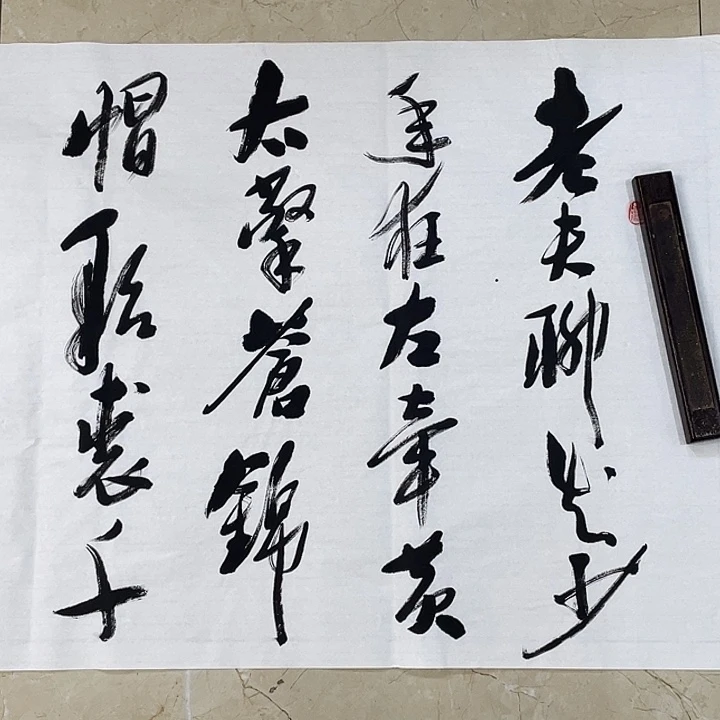 老夫聊发少
年狂左牵黄
右擎蒼錦
帽貂裘千